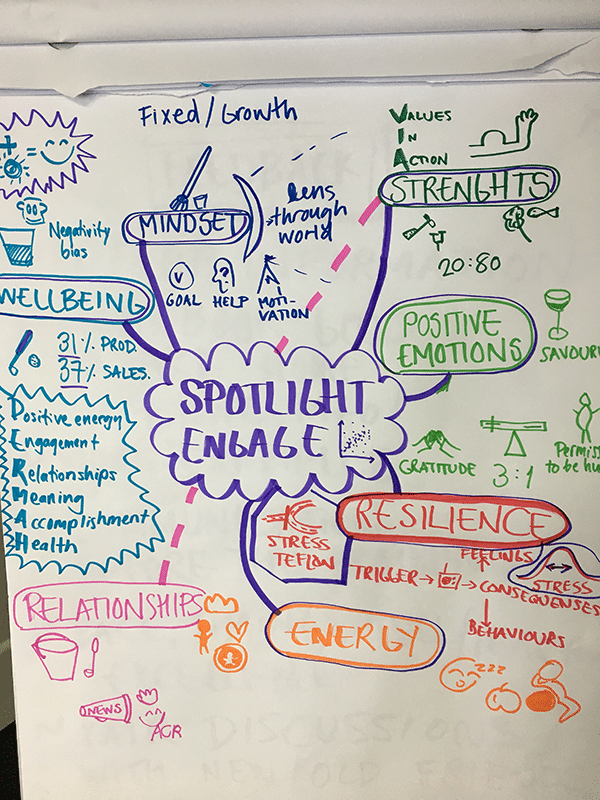 Fixed/Growth
VALUES
IN
ACTION
STRENGHTS
20:80
MINDSET
lens
through
world
GOAL
HELP
MOTI-
VATION
Negativity
bias
WELLBEING
31% PROD.
37% SALES.
Positive energy
Engagement
Relationships
Meaning
Accomplishment
Health
SPOTLIGHT
ENGAGE
POSITIVE
EMOTIONS
SAVOURI
GRATITUDE
3:1
Permiss
to be hu
RESILIENCE
STRESS
TEFLON
FEELINGS
TRIGGER → → CONSEQUENSES
BEHAVIOURS
STRESS
RELATIONSHIPS
NEWS
ACR
ENERGY
zzz